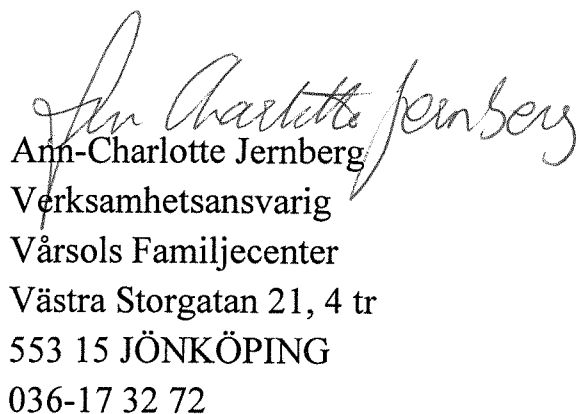 Ann Charlotte Jernberg
Ann-Charlotte Jernberg
Verksamhetsansvarig
Vårsols Familjecenter
Västra Storgatan 21, 4 tr
553 15 JÖNKÖPING
036-17 32 72